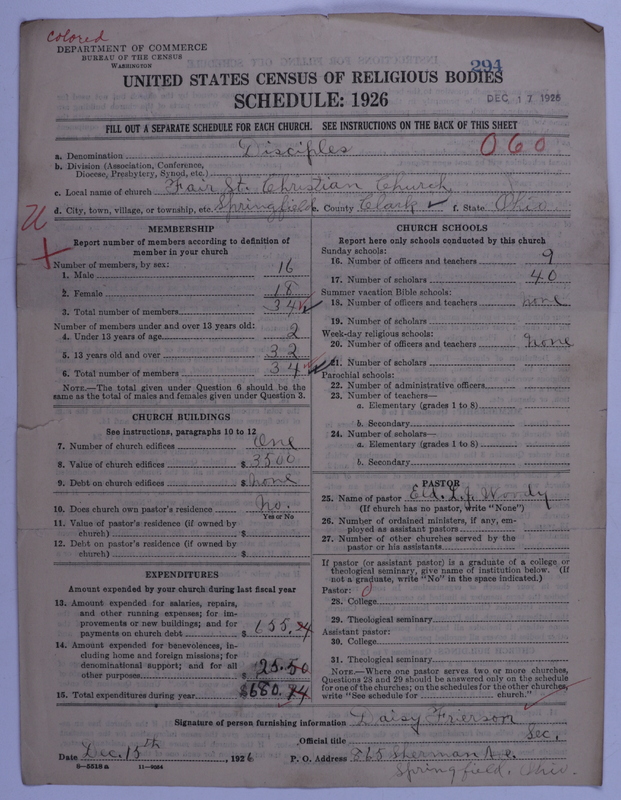 colored
DEPARTMENT OF COMMERCE
BUREAU OF THE CENSUS
WASHINGTON
294
UNITED STATES CENSUS OF RELIGIOUS BODIES
SCHEDULE: 1926
DEC 17 1926
FILL OUT A SEPARATE SCHEDULE FOR EACH CHURCH. SEE INSTRUCTIONS ON THE BACK OF THIS SHEET
a. Denomination Disciples 060
b. Division (Association, Conference,
Diocese, Presbytery, Synod, etc.)
c. Local name of church Fair St. Christian Church
d. City, town, village, or township, etc. Springfield e. County Clark f. State Ohio
MEMBERSHIP
Report number of members according to definition of
member in your church
Number of members, by sex:
1. Male 16
2. Female 18
3. Total number of members 34
Number of members under and over 13 years old:
4. Under 13 years of age 2
5. 13 years old and over 32
6. Total number of members 34
NOTE.—The total given under Question 6 should be the
same as the total of males and females given under Question 3.
CHURCH BUILDINGS
See instructions, paragraphs 10 to 12
7. Number of church edifices One
8. Value of church edifices $3500
9. Debt on church edifices $none
10. Does church own pastor's residence No.
Yes or No
11. Value of pastor's residence (if owned by
church) $
12. Debt on pastor's residence (if owned by
church) $
EXPENDITURES
Amount expended by your church during last fiscal year
13. Amount expended for salaries, repairs,
and other running expenses; for im-
provements or new buildings; and for
payments on church debt $
14. Amount expended for benevolences, in-
cluding home and foreign missions; for
denominational support; and for all
other purposes $25.50
15. Total expenditures during year $680.
CHURCH SCHOOLS
Report here only schools conducted by this church
Sunday schools:
16. Number of officers and teachers 9
17. Number of scholars 40
Summer vacation Bible schools:
18. Number of officers and teachers none
19. Number of scholars
Week-day religious schools:
20. Number of officers and teachers none
21. Number of scholars
Parochial schools:
22. Number of administrative officers
23. Number of teachers—
a. Elementary (grades 1 to 8)
b. Secondary
24. Number of scholars—
a. Elementary (grades 1 to 8)
b. Secondary
PASTOR
25. Name of pastor Eld. L. J. Woody
(If church has no pastor, write "None")
26. Number of ordained ministers, if any, em-
ployed as assistant pastors
27. Number of other churches served by the
pastor or his assistants
If pastor (or assistant pastor) is a graduate of a college or
theological seminary, give name of institution below. (If
not a graduate, write "No" in the space indicated.)
Pastor:
28. College
29. Theological seminary
Assistant pastor:
30. College
31. Theological seminary
NOTE.—Where one pastor serves two or more churches,
Questions 28 and 29 should be answered only on the schedule
for one of the churches; on the schedules for the other churches,
write "See schedule for church."
Signature of person furnishing information Daisy Frierson
Official title Sec.
Date Dec. 15th, 1926 P. O. Address 865 Sherman Ave.
8—5518a 11—9054 Springfield, Ohio.